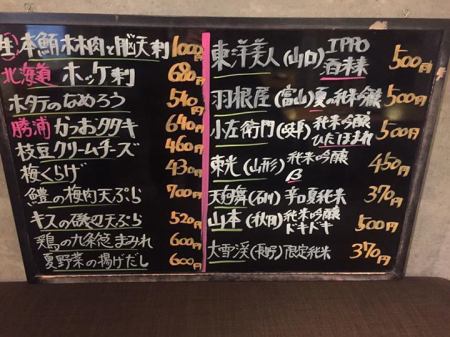 生本鮪木木肉と脳天刺 1000円
北海道 ホッケ刺 680円
ホタテのなめろう 540円
勝浦 かつおタタキ 640円
枝豆クリームチーズ 460円
梅くらげ 430円
鱧の梅肉天ぷら 700円
キスの磯辺天ぷら 520円
鶏の九条葱まみれ 600円
夏野菜の揚げだし 600円
東洋美人 (山口) IPPO 百未来 500円
羽根屋 (富山) 夏の純米吟醸 500円
小左衛門 (岐阜) 純米吟醸 ひだほまれ 500円
東光 (山形) 純米吟醸 β 450円
天狗舞 (石川) 辛口夏純米 370円
山本 (秋田) 純米吟醸 ドキドキ 500円
大雪渓 (長野) 限定純米 370円